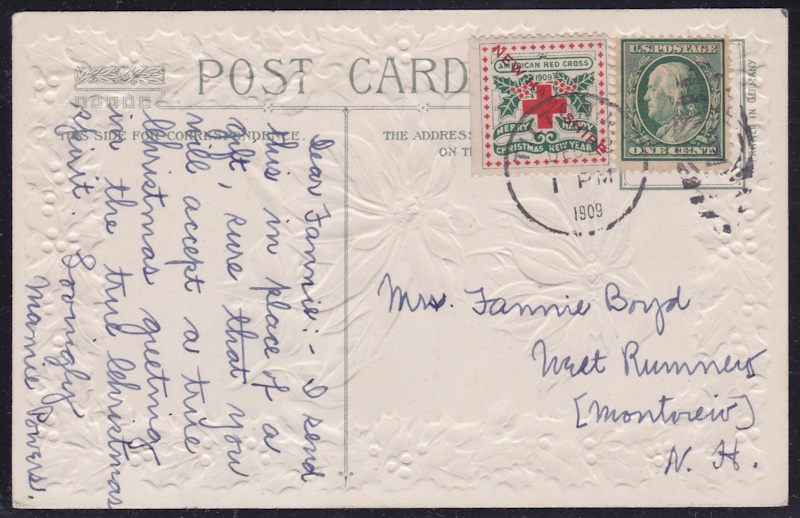 POST CARD
THIS SIDE FOR CORRESPONDENCE.
THE ADDRESS
ON TH
NEW
SHIRE
AMERICAN RED CROSS
1909
MERRY HA
CHRISTMAS NEW YEAR
U.S. POSTAGE
ONE CENT
IN GERMANY
1 PM
1909
Dear Fannie:- I send
this in place of a
gift, sure that you
will accept a true
Christmas greeting
in the true Christmas
spirit.
Lovingly
Mamie Powers.
Mrs. Fannie Boyd
West Rumney
[Montview]
N. H.